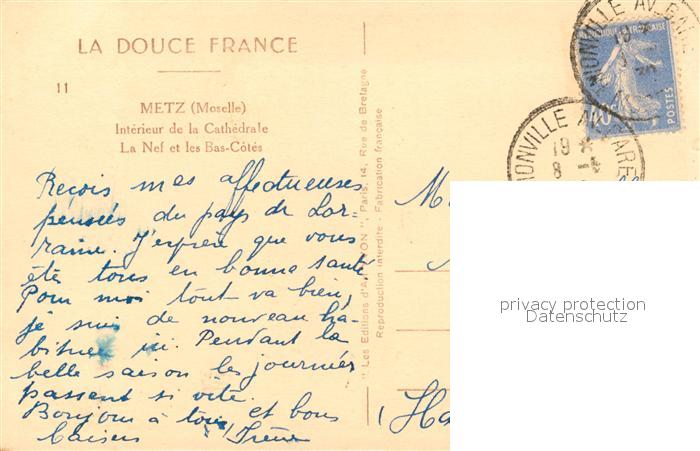 LA DOUCE FRANCE
11
METZ (Moselle)
Intérieur de la Cathédrale
La Nef et les Bas-Côtés
Reçois mes affectueuses
pensées du pays de Lor-
raine. J'espère que vous
été tous en bonne santé
Pour moi tout va bien,
je suis de nouveau ha-
bituée ici. Pendant la
belle saison les journées
passent si vite.
Bonjour à tous et bons
baisers Irène
" Les Editions d'Art Paris, 14, Rue de Bretagne
Reproduction interdite - Fabrication française
POSTES
19
8
privacy protection
Datenschutz